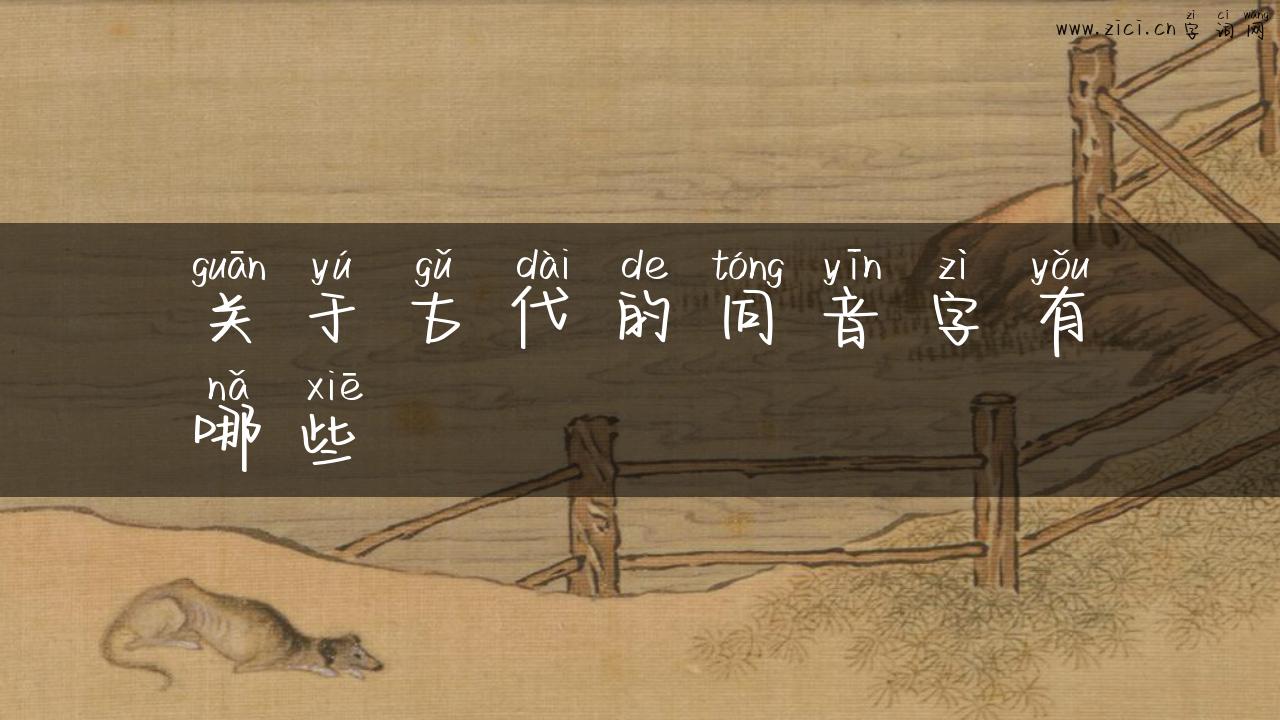 zì cí wǎng
www.zici.cn 字词网
guān yú gǔ dài de tóng yīn zì yǒu
关于古代的同音字有
nǎ xiē
哪些